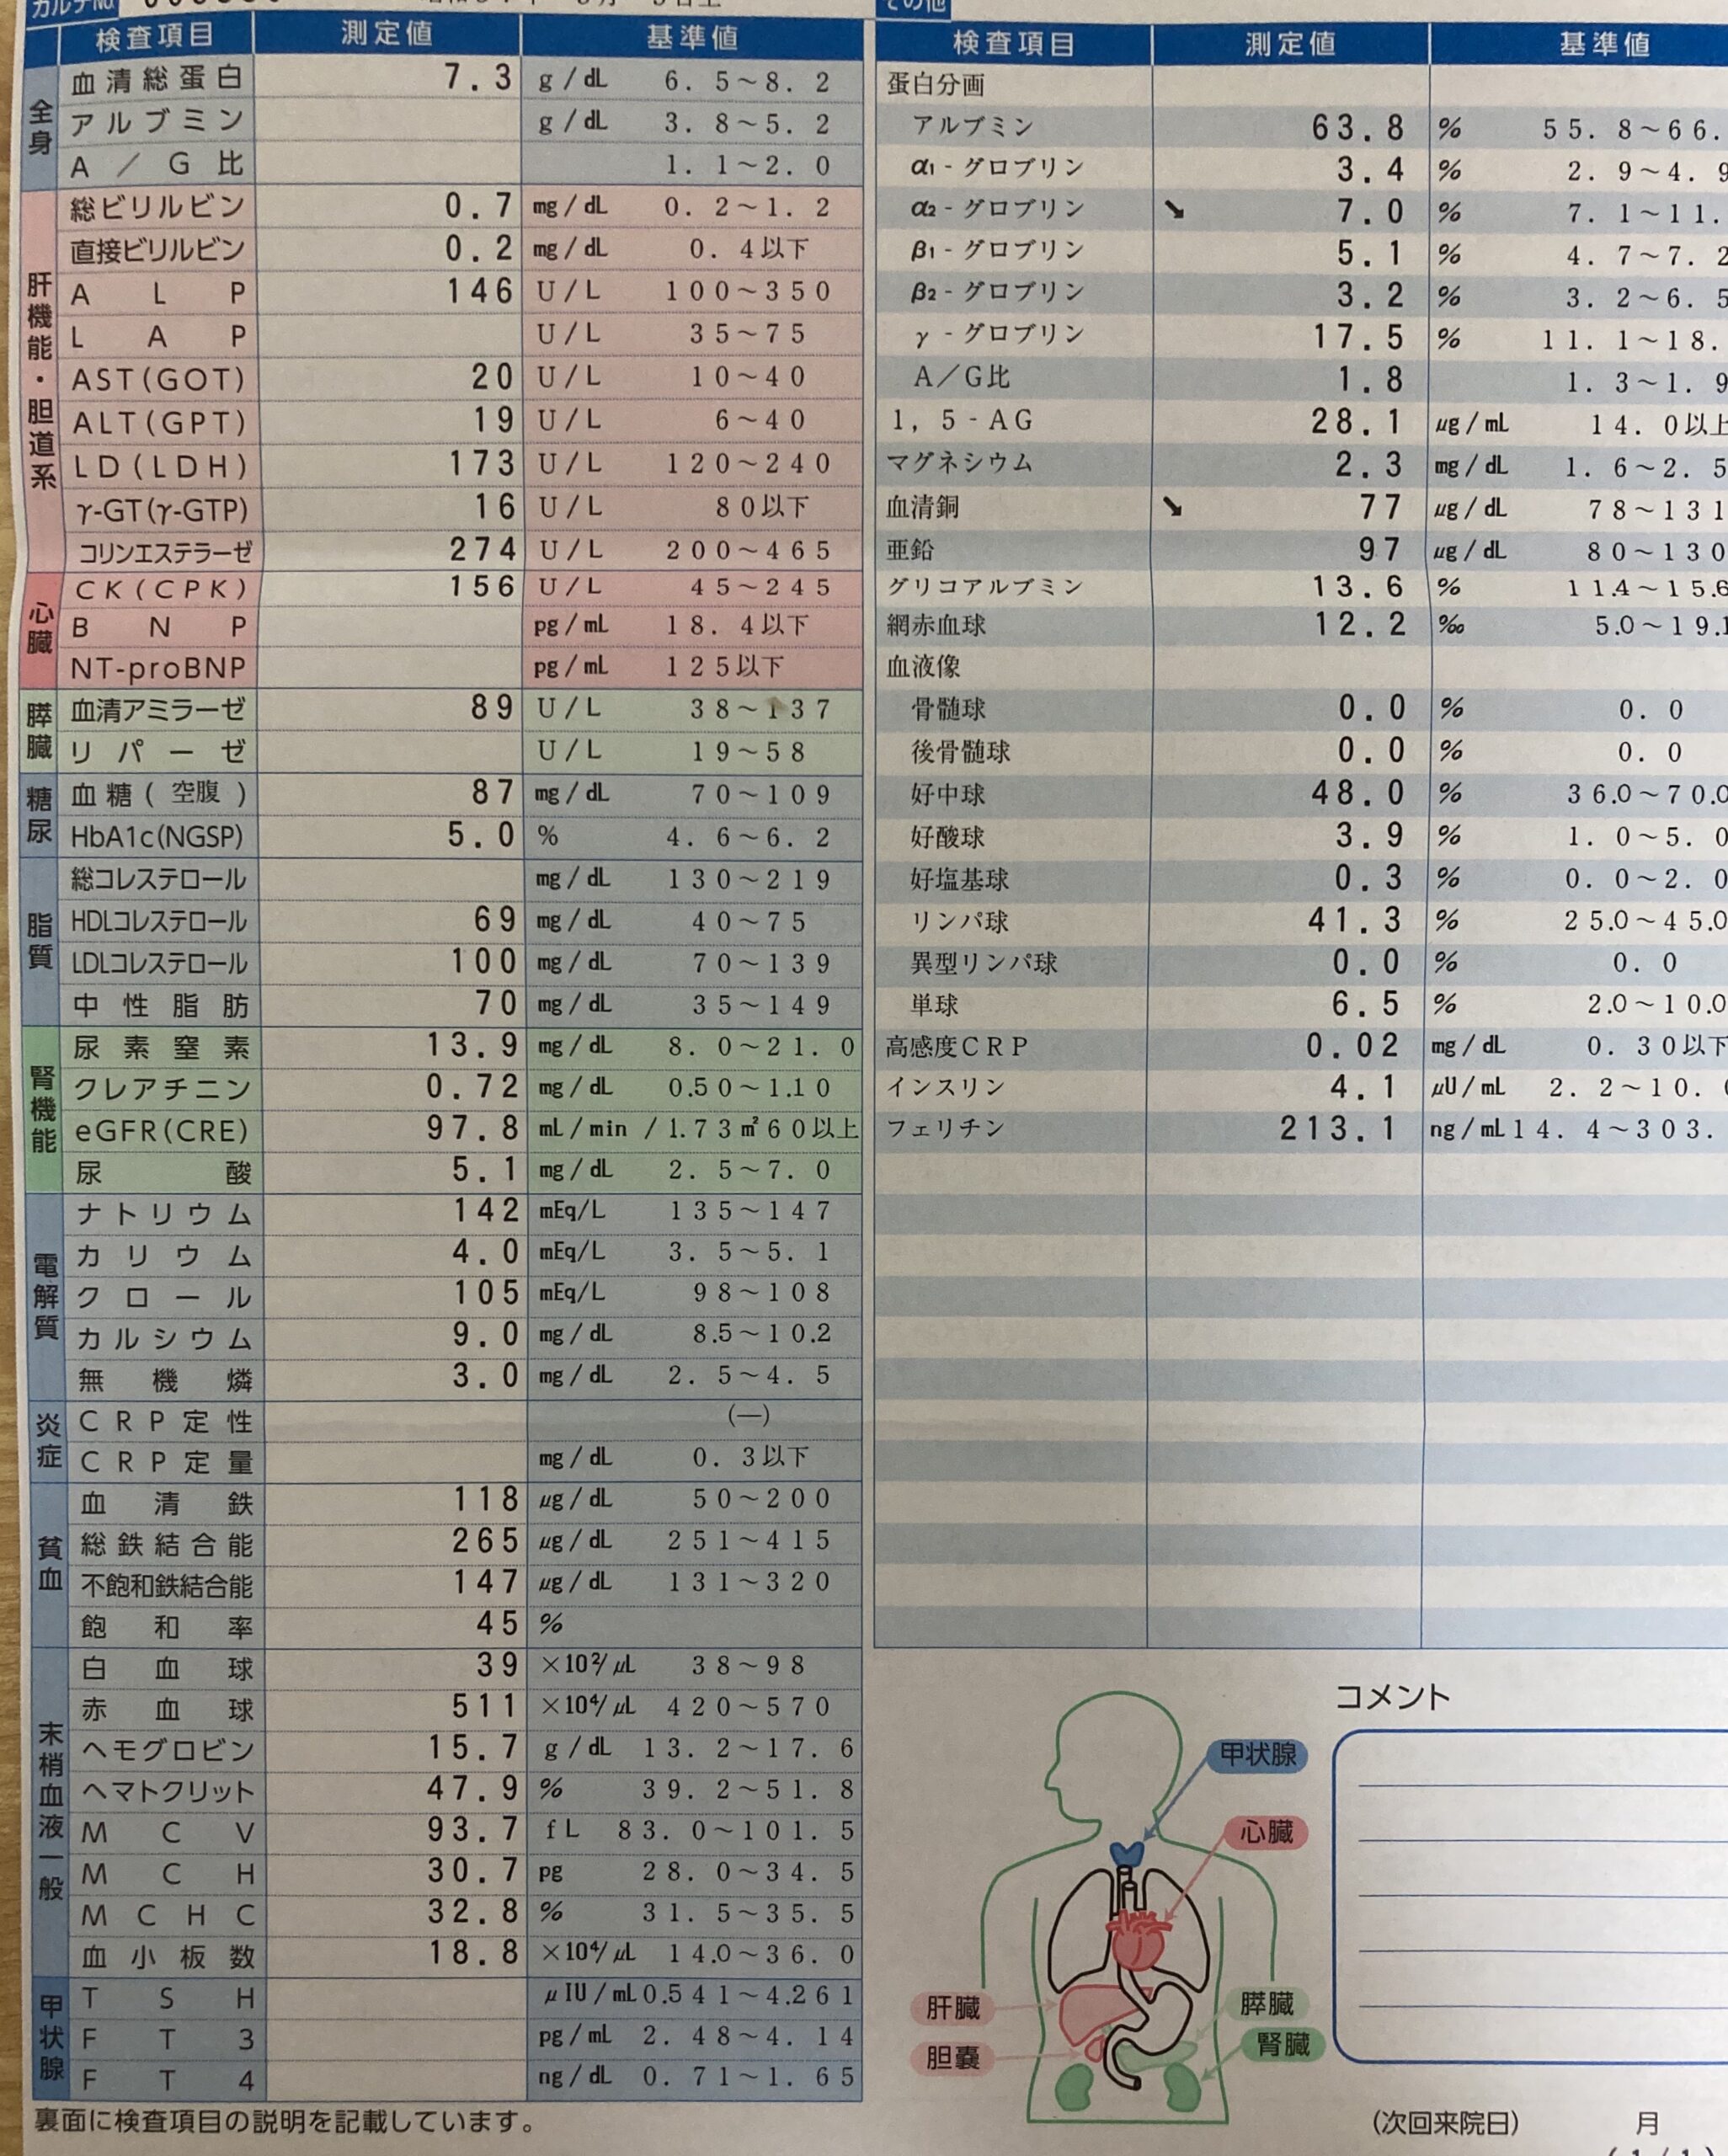 カルテNo.
その他
検査項目 測定値 基準値
全身
血清総蛋白 7.3 g/dL 6.5~8.2
アルブミン g/dL 3.8~5.2
A/G比 1.1~2.0
肝機能・胆道系
総ビリルビン 0.7 mg/dL 0.2~1.2
直接ビリルビン 0.2 mg/dL 0.4以下
ALP 146 U/L 100~350
LAP U/L 35~75
AST(GOT) 20 U/L 10~40
ALT(GPT) 19 U/L 6~40
LD(LDH) 173 U/L 120~240
γ-GT(γ-GTP) 16 U/L 80以下
コリンエステラーゼ 274 U/L 200~465
心臓
CK(CPK) 156 U/L 45~245
BNP pg/mL 18.4以下
NT-proBNP pg/mL 125以下
膵臓
血清アミラーゼ 89 U/L 38~137
リパーゼ U/L 19~58
糖尿
血糖(空腹) 87 mg/dL 70~109
HbA1c(NGSP) 5.0 % 4.6~6.2
脂質
総コレステロール mg/dL 130~219
HDLコレステロール 69 mg/dL 40~75
LDLコレステロール 100 mg/dL 70~139
中性脂肪 70 mg/dL 35~149
腎機能
尿素窒素 13.9 mg/dL 8.0~21.0
クレアチニン 0.72 mg/dL 0.50~1.10
eGFR(CRE) 97.8 mL/min/1.73㎡60以上
尿酸 5.1 mg/dL 2.5~7.0
電解質
ナトリウム 142 mEq/L 135~147
カリウム 4.0 mEq/L 3.5~5.1
クロール 105 mEq/L 98~108
カルシウム 9.0 mg/dL 8.5~10.2
無機燐 3.0 mg/dL 2.5~4.5
炎症
CRP定性 (―)
CRP定量 mg/dL 0.3以下
貧血
血清鉄 118 μg/dL 50~200
総鉄結合能 265 μg/dL 251~415
不飽和鉄結合能 147 μg/dL 131~320
飽和率 45 %
末梢血液一般
白血球 39 ×10²/μL 38~98
赤血球 511 ×10⁴/μL 420~570
ヘモグロビン 15.7 g/dL 13.2~17.6
ヘマトクリット 47.9 % 39.2~51.8
MCV 93.7 fL 83.0~101.5
MCH 30.7 pg 28.0~34.5
MCHC 32.8 % 31.5~35.5
血小板数 18.8 ×10⁴/μL 14.0~36.0
甲状腺
TSH μIU/mL 0.541~4.261
FT3 pg/mL 2.48~4.14
FT4 ng/dL 0.71~1.65
裏面に検査項目の説明を記載しています。
検査項目 測定値 基準値
蛋白分画
アルブミン 63.8 % 55.8~66.
α1-グロブリン 3.4 % 2.9~4.9
α2-グロブリン ↘ 7.0 % 7.1~11.
β1-グロブリン 5.1 % 4.7~7.2
β2-グロブリン 3.2 % 3.2~6.5
γ-グロブリン 17.5 % 11.1~18.
A/G比 1.8 1.3~1.9
1,5-AG 28.1 μg/mL 14.0以上
マグネシウム 2.3 mg/dL 1.6~2.5
血清銅 ↘ 77 μg/dL 78~131
亜鉛 97 μg/dL 80~130
グリコアルブミン 13.6 % 11.4~15.6
網赤血球 12.2 ‰ 5.0~19.1
血液像
骨髄球 0.0 % 0.0
後骨髄球 0.0 % 0.0
好中球 48.0 % 36.0~70.0
好酸球 3.9 % 1.0~5.0
好塩基球 0.3 % 0.0~2.0
リンパ球 41.3 % 25.0~45.0
異型リンパ球 0.0 % 0.0
単球 6.5 % 2.0~10.0
高感度CRP 0.02 mg/dL 0.30以下
インスリン 4.1 μU/mL 2.2~10.
フェリチン 213.1 ng/mL 14.4~303.
コメント
甲状腺
心臓
肝臓
膵臓
胆嚢
腎臓
(次回来院日) 月